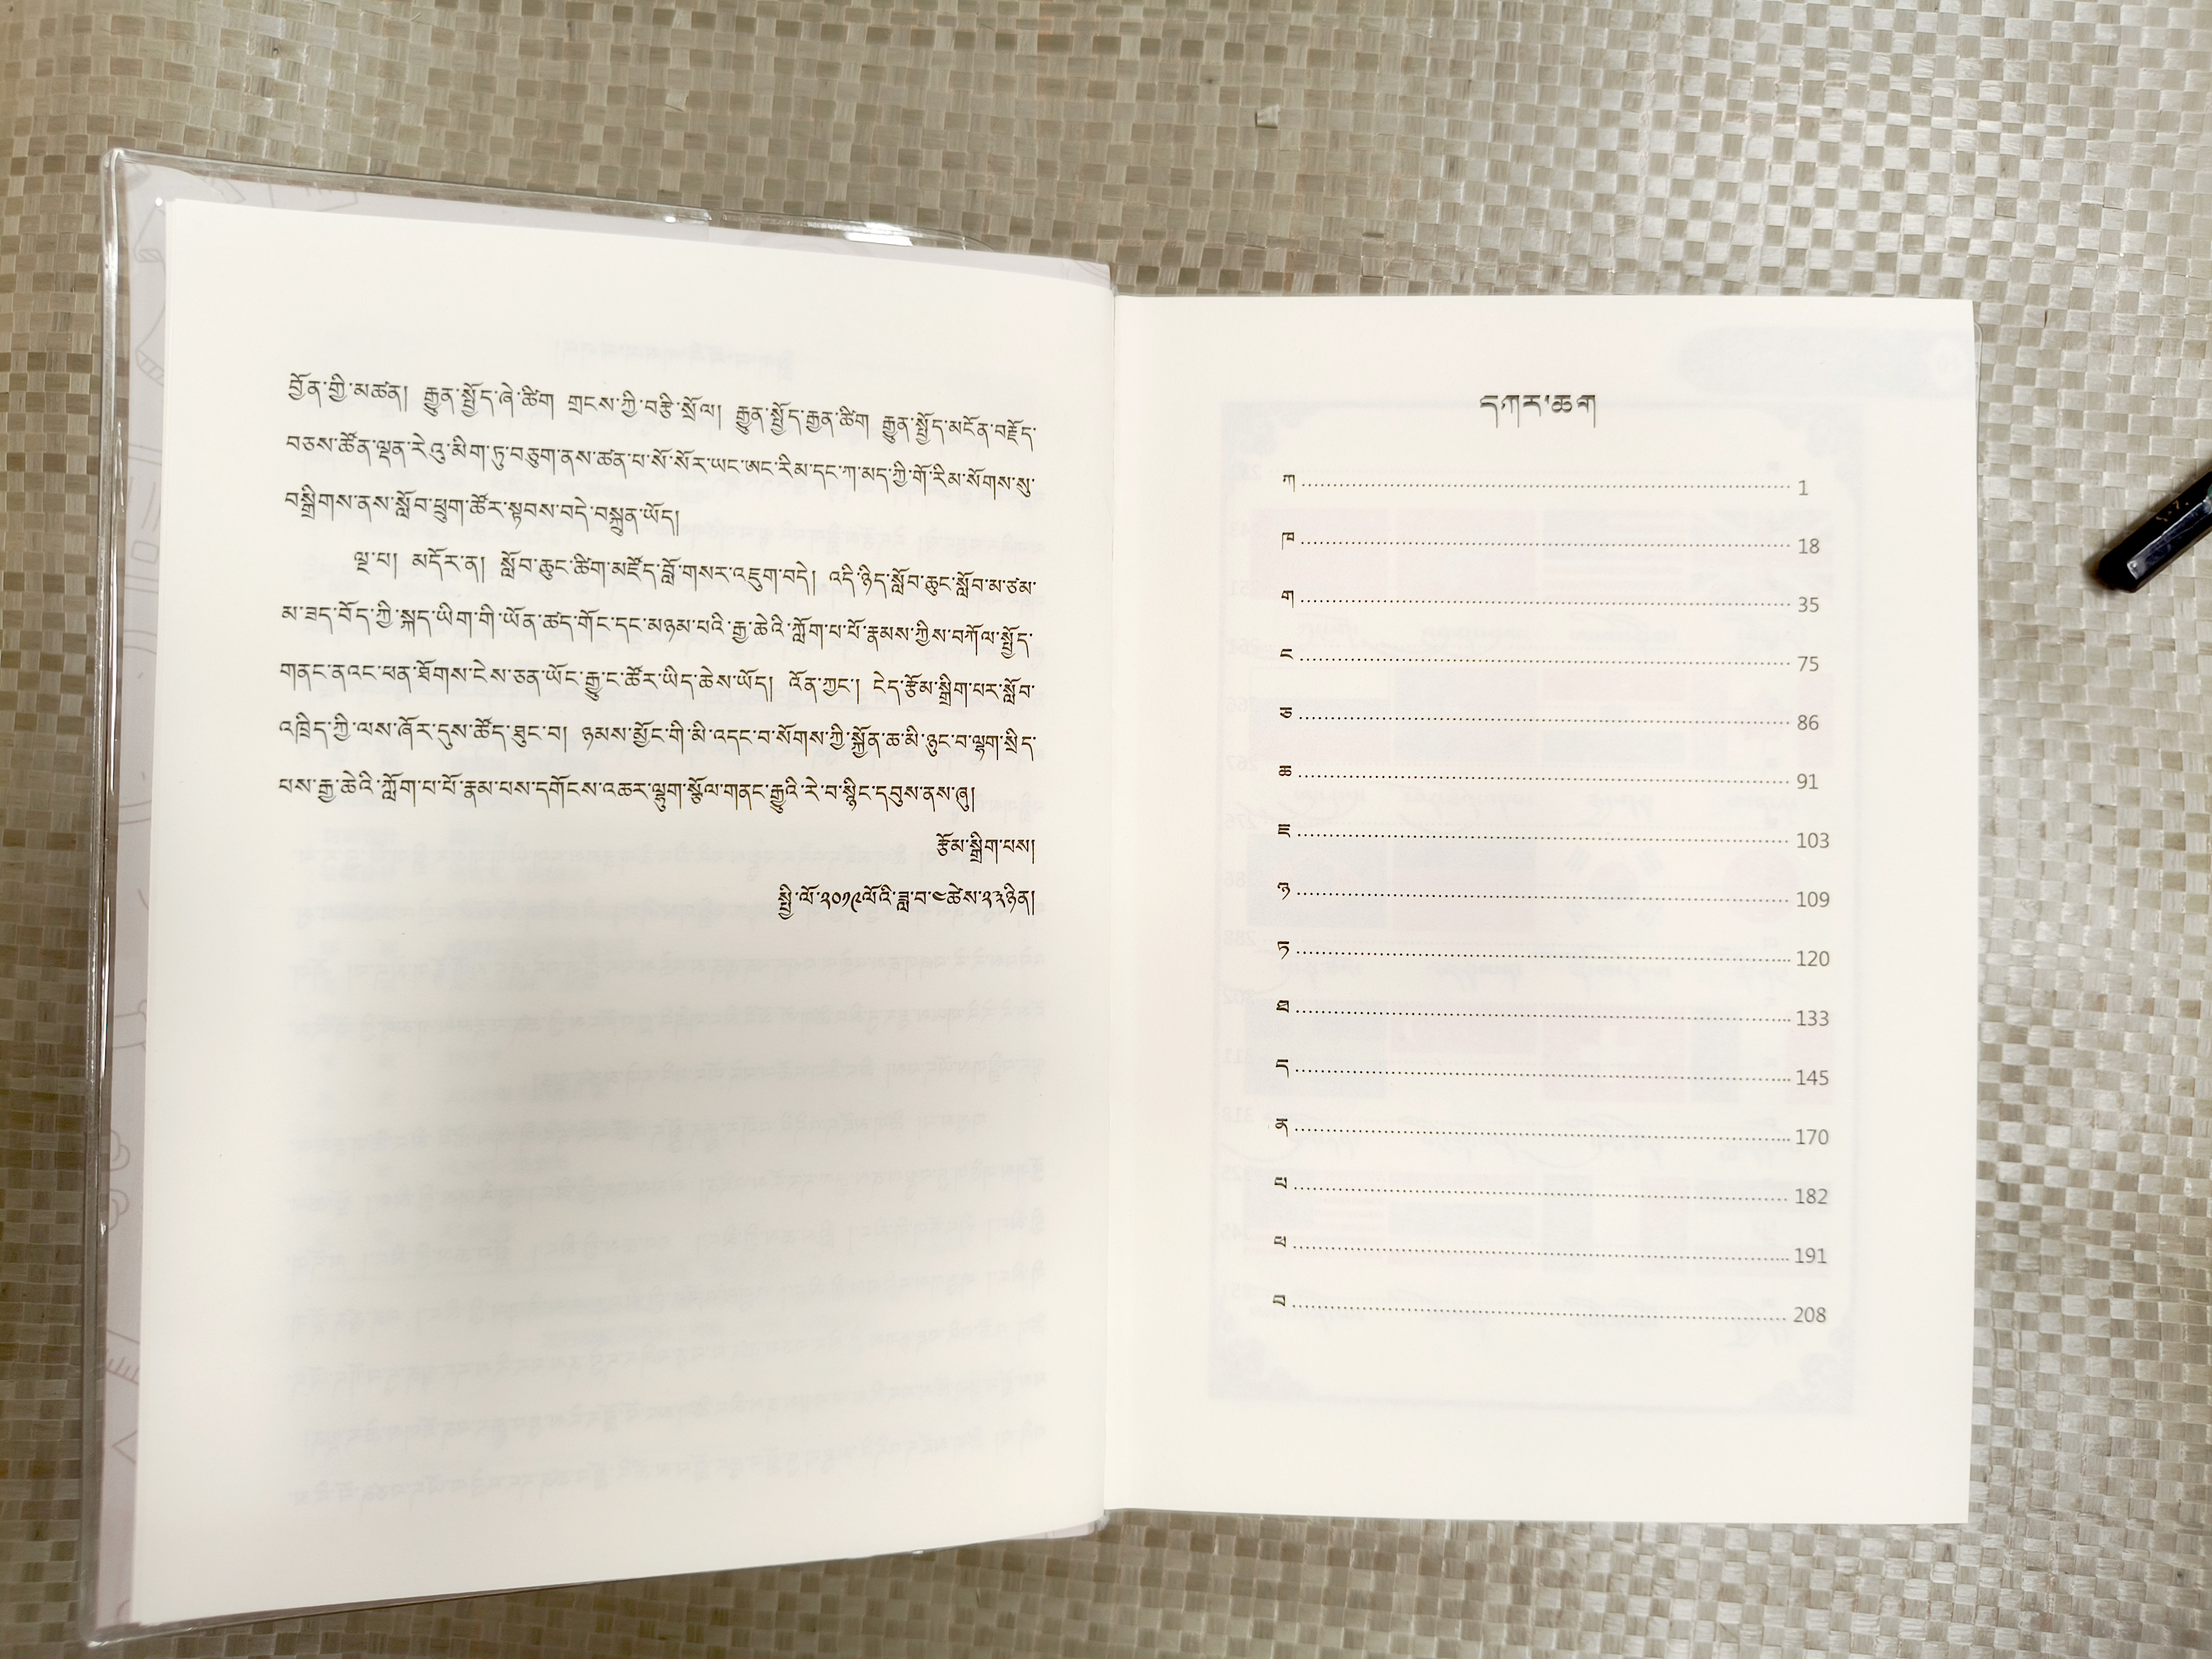 བྱོན་གྱི་མཚན། རྒྱུན་སྤྱོད་ཞེ་ཚིག གྲངས་ཀྱི་བརྩི་སྲོལ། རྒྱུན་སྤྱོད་རྒྱན་ཚིག རྒྱུན་སྤྱོད་མངོན་བརྗོད་
བཅས་ཚོན་ལྡན་རེའུ་མིག་ཏུ་བཅུག་ནས་ཚན་པ་སོ་སོར་ཡང་ཨང་རིམ་དང་ཀ་མད་ཀྱི་གོ་རིམ་སོགས་སུ་
བསྒྲིགས་ནས་སློབ་ཕྲུག་ཚོར་སྟབས་བདེ་བསྐྲུན་ཡོད།
ལྔ་པ། མདོར་ན། སློབ་ཆུང་ཚིག་མཛོད་བློ་གསར་འཇུག་བདེ། འདི་ཉིད་སློབ་ཆུང་སློབ་མ་ཙམ་
མ་ཟད་བོད་ཀྱི་སྐད་ཡིག་གི་ཡོན་ཚད་གོང་དང་མཉམ་པའི་རྒྱ་ཆེའི་ཀློག་པ་པོ་རྣམས་ཀྱིས་བཀོལ་སྤྱོད་
གནང་ནའང་ཕན་ཐོགས་ངེས་ཅན་ཡོང་རྒྱུ་ང་ཚོར་ཡིད་ཆེས་ཡོད། འོན་ཀྱང་། ངེད་རྩོམ་སྒྲིག་པར་སློབ་
འཁྲིད་ཀྱི་ལས་ཞོར་དུས་ཚོད་ཐུང་བ། ཉམས་མྱོང་གི་མི་འདང་བ་སོགས་ཀྱི་སྐྱོན་ཆ་མི་ཉུང་བ་ལྷག་སྲིད་
པས་རྒྱ་ཆེའི་ཀློག་པ་པོ་རྣམ་པས་དགོངས་འཆར་ལྷུག་སྩོལ་གནང་རྒྱུའི་རེ་བ་སྙིང་དབུས་ནས་ཞུ།
རྩོམ་སྒྲིག་པས།
སྤྱི་ལོ་༢༠༡༩ལོའི་ཟླ་བ་༤ཚེས་༢༣ཉིན།
དཀར་ཆག
ཀ 1
ཁ 18
ག 35
ང 75
ཅ 86
ཆ 91
ཇ 103
ཉ 109
ཏ 120
ཐ 133
ད 145
ན 170
པ 182
ཕ 191
བ 208